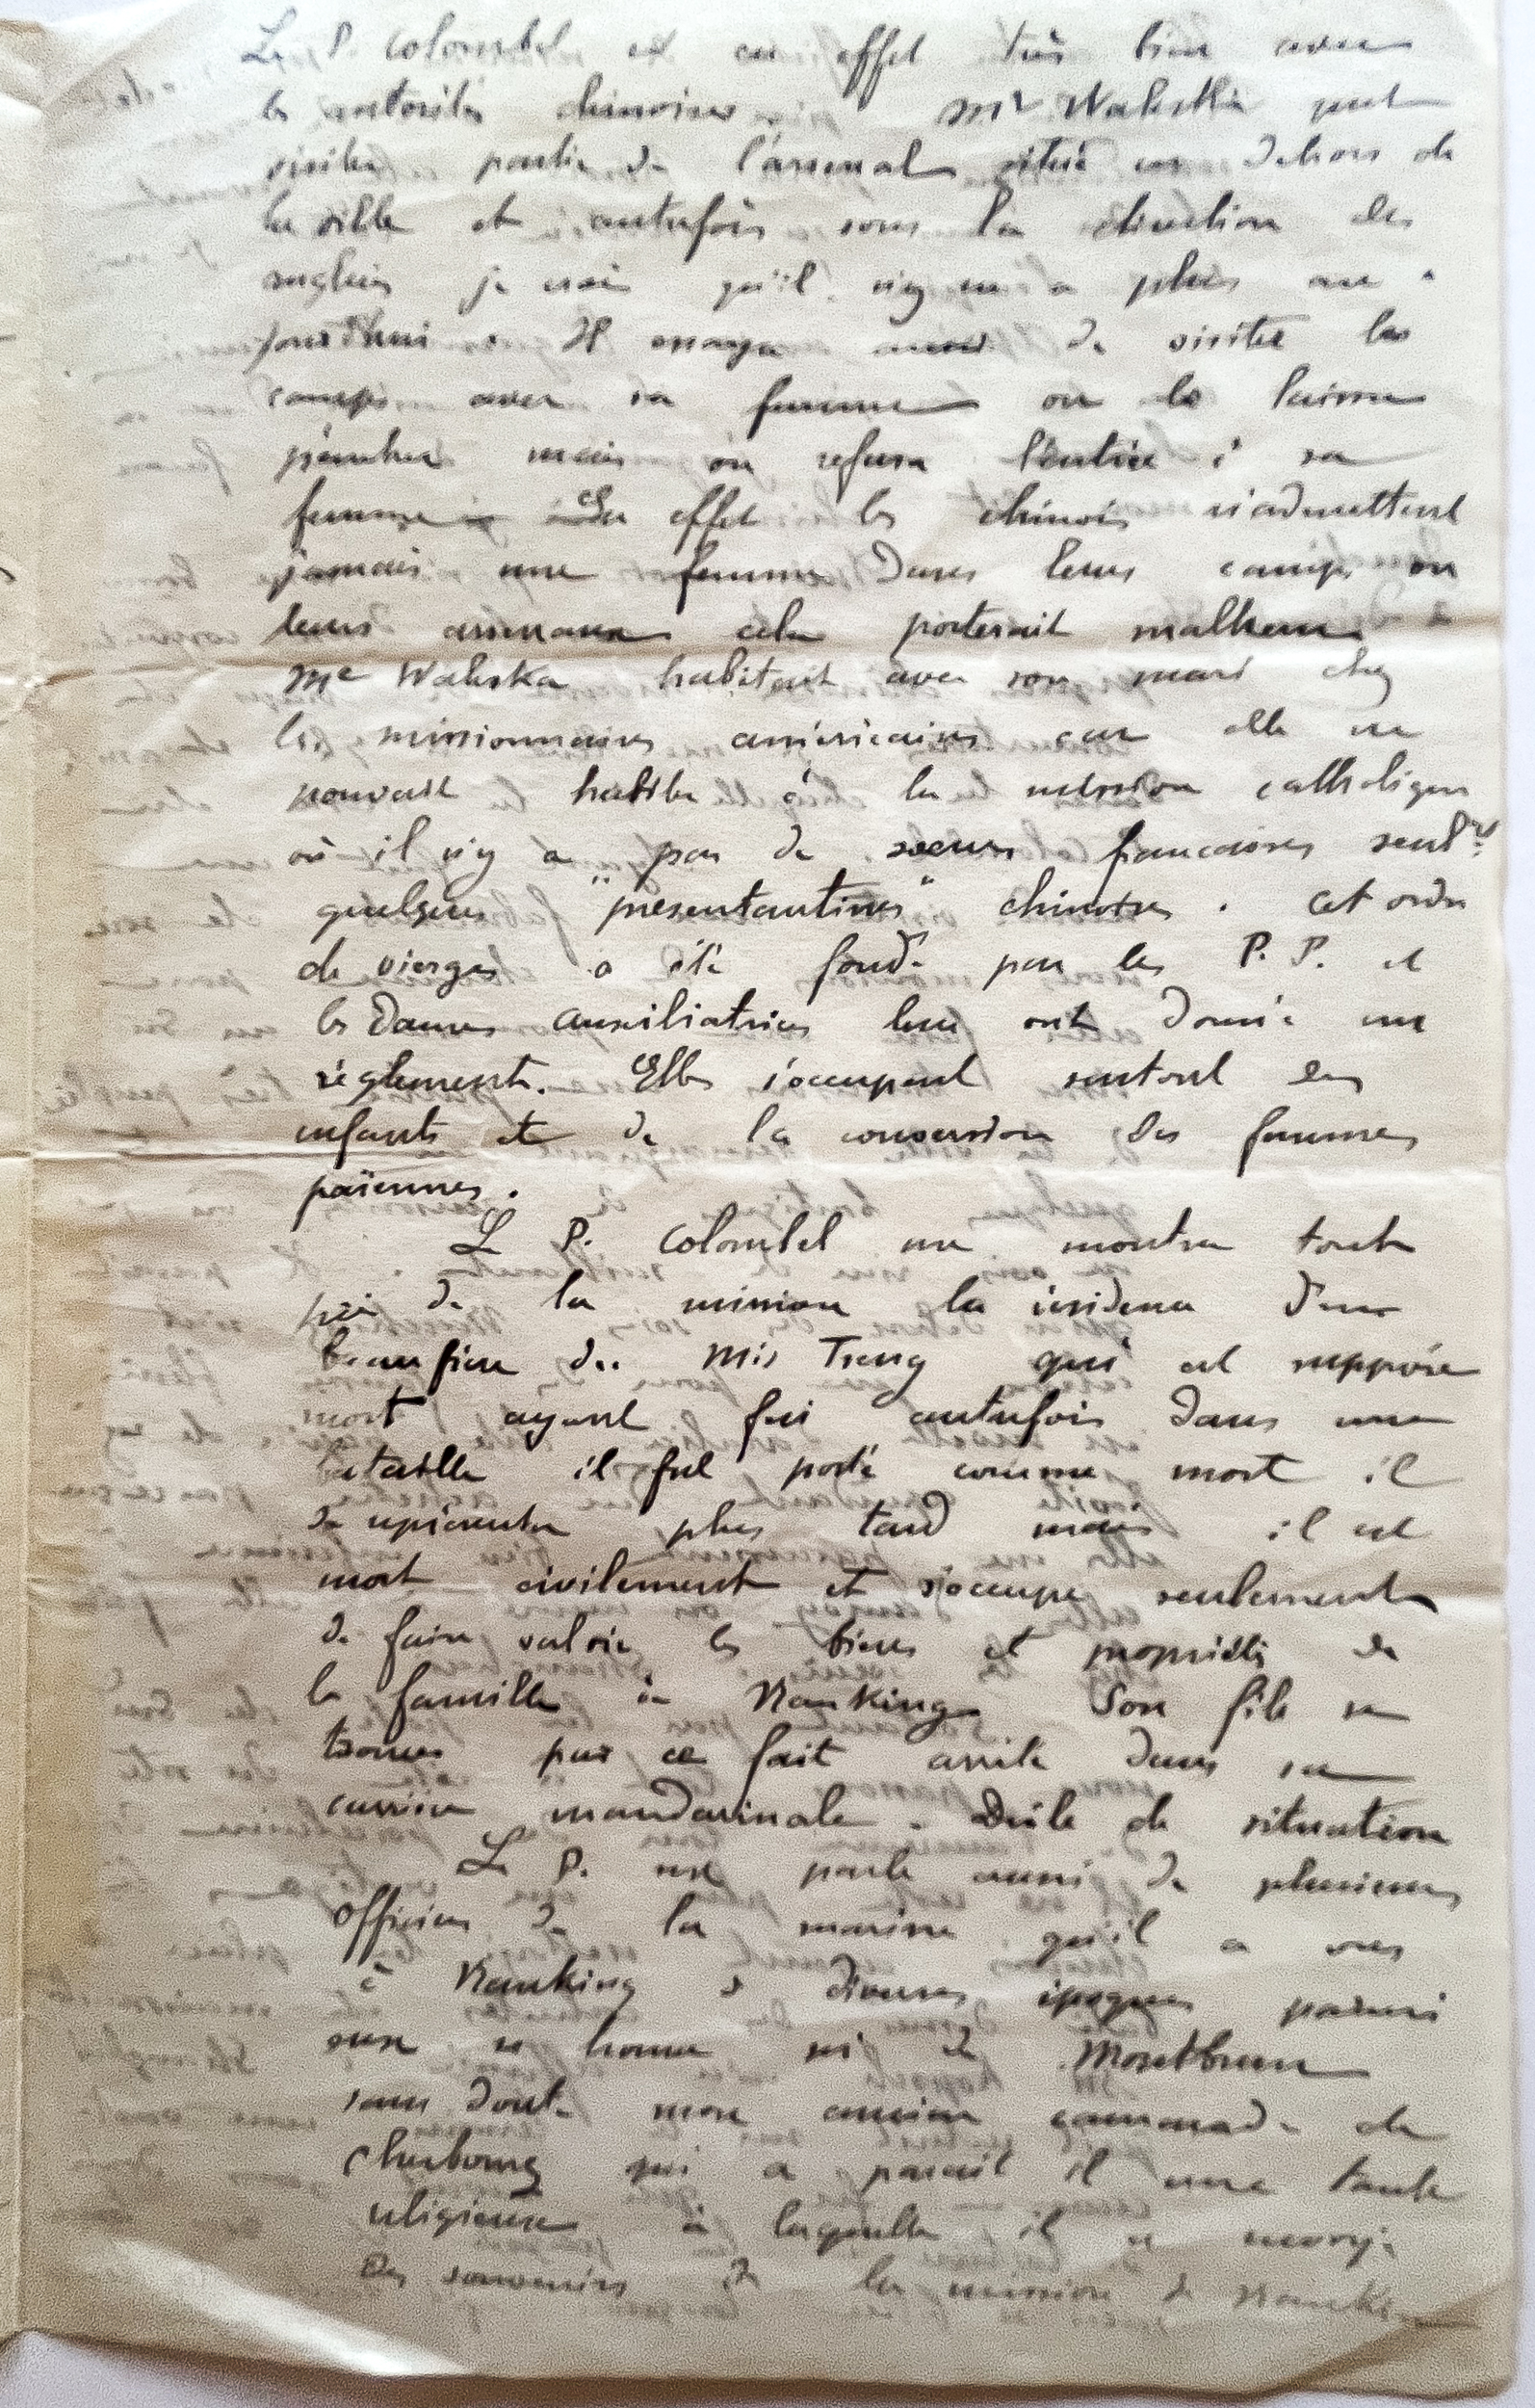 Le P. Colombel est en effet très bien avec
les autorités chinoises Mr Walestka put
visiter partie de l'arsenal situé en dehors de
la ville et autrefois sous la direction des
anglais je crois qu'il n'y en a plus au-
jourd'hui. Il essaya aussi de visiter les
camps avec sa femme on le laissa
pénétrer mais on refusa l'entrée à sa
femme. En effet les chinois n'admettent
jamais une femme dans leurs camps ou
leurs arsenaux cela porterait malheur
Me Walestka habitait avec son mari chez
les missionnaires américains car elle ne
pouvait habiter à la mission catholique
où il n'y a pas de soeurs françaises seulmt
quelques "présentantines" chinoises. Cet ordre
de vierges a été fondé par les P.P. et
les Dames auxiliatrices leur ont donné un
règlement. Elles s'occupent surtout des
enfants et de la conversion des femmes
païennes.
Le P. Colombel me montre tout
près de la mission la résidence d'un
beau frère du Mis Tseng qui est supposé
mort ayant fui autrefois dans une
bataille il fut porté comme mort il
se représenta plus tard mais il est
mort civilement et s'occupe seulement
de faire valoir les biens et propriétés de
la famille à Nanking Son fils se
trouve par ce fait arrêté dans sa
carrière mandarinale. Drôle de situation
Le P. me parle aussi de plusieurs
officiers de la marine qu'il a vus
à Nanking à diverses époques parmi
eux se trouve de Montbrun
sans doute mon ancien camarade de
Cherbourg qui a parait il une tante
religieuse à laquelle il a envoyé
des souvenirs de la mission de Nankin